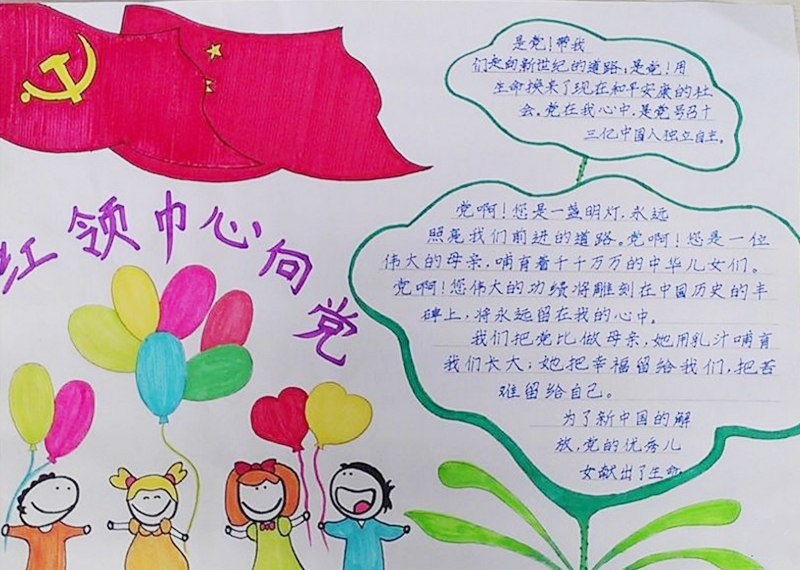 红领巾心向党
是党!带我
们走向新世纪的道路,是党!用
生命换来了现在和平安康的社
会。党在我心中,是党号召十
三亿中国人独立自主。
党啊!您是一盏明灯,永远
照亮我们前进的道路。党啊!您是一位
伟大的母亲,哺育着千千万万的中华儿女们。
党啊!您伟大的功绩将雕刻在中国历史的丰
碑上,将永远留在我的心中。
我们把党比做母亲,她用乳汁哺育
我们长大;她把幸福留给我们,把苦
难留给自己。
为了新中国的解
放,党的优秀儿
女献出了生命